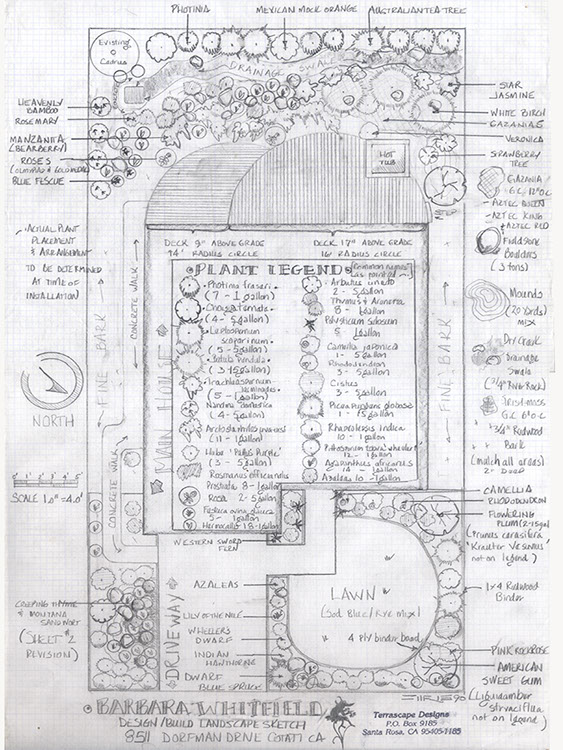 PHOTINIA
MEXICAN MOCK ORANGE
AUSTRALIAN TEA TREE
Existing
Cedrus
DRAINAGE SWALE
HEAVENLY
BAMBOO
ROSEMARY
MANZANITA
(BEARBERRY)
ROSES
BLUE FESCUE
STAR
JASMINE
WHITE BIRCH
GAZANIAS
VERONICA
STRAWBERRY
TREE
HOT
TUB
GAZANIA
AZTEC QUEEN
AZTEC KING
& AZTEC RED
Fieldstone
Boulders
(3 tons)
Mounds
(20 yards)
MIX
Dry Creek
Drainage
Swale
Irish moss
G.C. 6" O.C.
3/4" Redwood
Bark
(match all areas)
2" Deep
• ACTUAL PLANT
PLACEMENT
& ARRANGEMENT
TO BE DETERMINED
AT TIME OF
INSTALLATION)
DECK 9" ABOVE GRADE
14' RADIUS CIRCLE
DECK 17" ABOVE GRADE
16' RADIUS CIRCLE
PLANT LEGEND
Photinia fraseri
(7 - 1 gallon)
Choisya ternata
(4 - 5 gallon)
Leptospermum
scoparium
(5 - 5 gallon)
Betula Pendula
(3 - 15 gallon)
(5 - 1 gallon)
Nandina Domestica
(4 - 5 gallon)
(11 - 1 gallon)
(3 - 5 gallon)
Rosmarinus officinalis
Prostrata 8 - 1 gallon
Rosa 2 - 5 gallon
Festuca ovina glauca
5 - 1 gallon
Hemerocallis 18 - 1 gallon
Arbutus unedo
2 - 5 gallon
Polystichum setosum
5 1 gallon
Camellia japonica
1 - 5 gallon
Rhododendron
3 - 5 gallon
Cistus
3 - gallon
Picea pungens globosa
1 - 15 gallon
Rhapiolepis indica
10 - 1 gallon
Pittosporum tobira 'wheeleri'
12 - 1 gallon
Agapanthus africanus
14 - 1 gallon
Azaleas 10 - 1 gallon
CONCRETE WALK
FINE BARK
MAIN HOUSE
FINE BARK
NORTH
SCALE 1.0" = 4.0'
CONCRETE WALK
WESTERN SWORD
FERN
CAMELLIA
RHODODENDRON
FLOWERING
PLUM (2-15 gal)
(Prunus cerasifera
'Krauter Vesuvius'
not on legend)
1x4 Redwood
Binder
AZALEAS
LILY OF THE NILE
WHEELER'S
DWARF
INDIAN
HAWTHORNE
DWARF
BLUE SPRUCE
LAWN
(Sod Blue/Rye mix)
4 PLY binder board
CREEPING THYME
& MONTANA
SANDWORT
(SHEET #2
REVISION)
DRIVEWAY
PINK ROCKROSE
AMERICAN
SWEET GUM
(Liquidambar
styraciflua
not on legend)
BARBARA WHITFIELD
DESIGN/BUILD LANDSCAPE SKETCH
8511 DORFMAN DRIVE COTATI CA
Terrascape Designs
P.O. Box 9185
Santa Rosa, CA 95405-1185